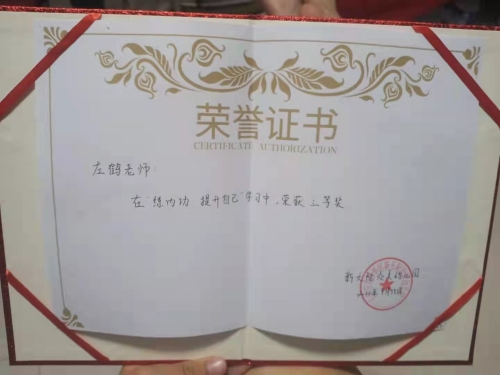 荣誉证书
CERTIFICATE AUTHORIZATION
左鹤老师:
在"练内功 提升自己"学习中,荣获三等奖